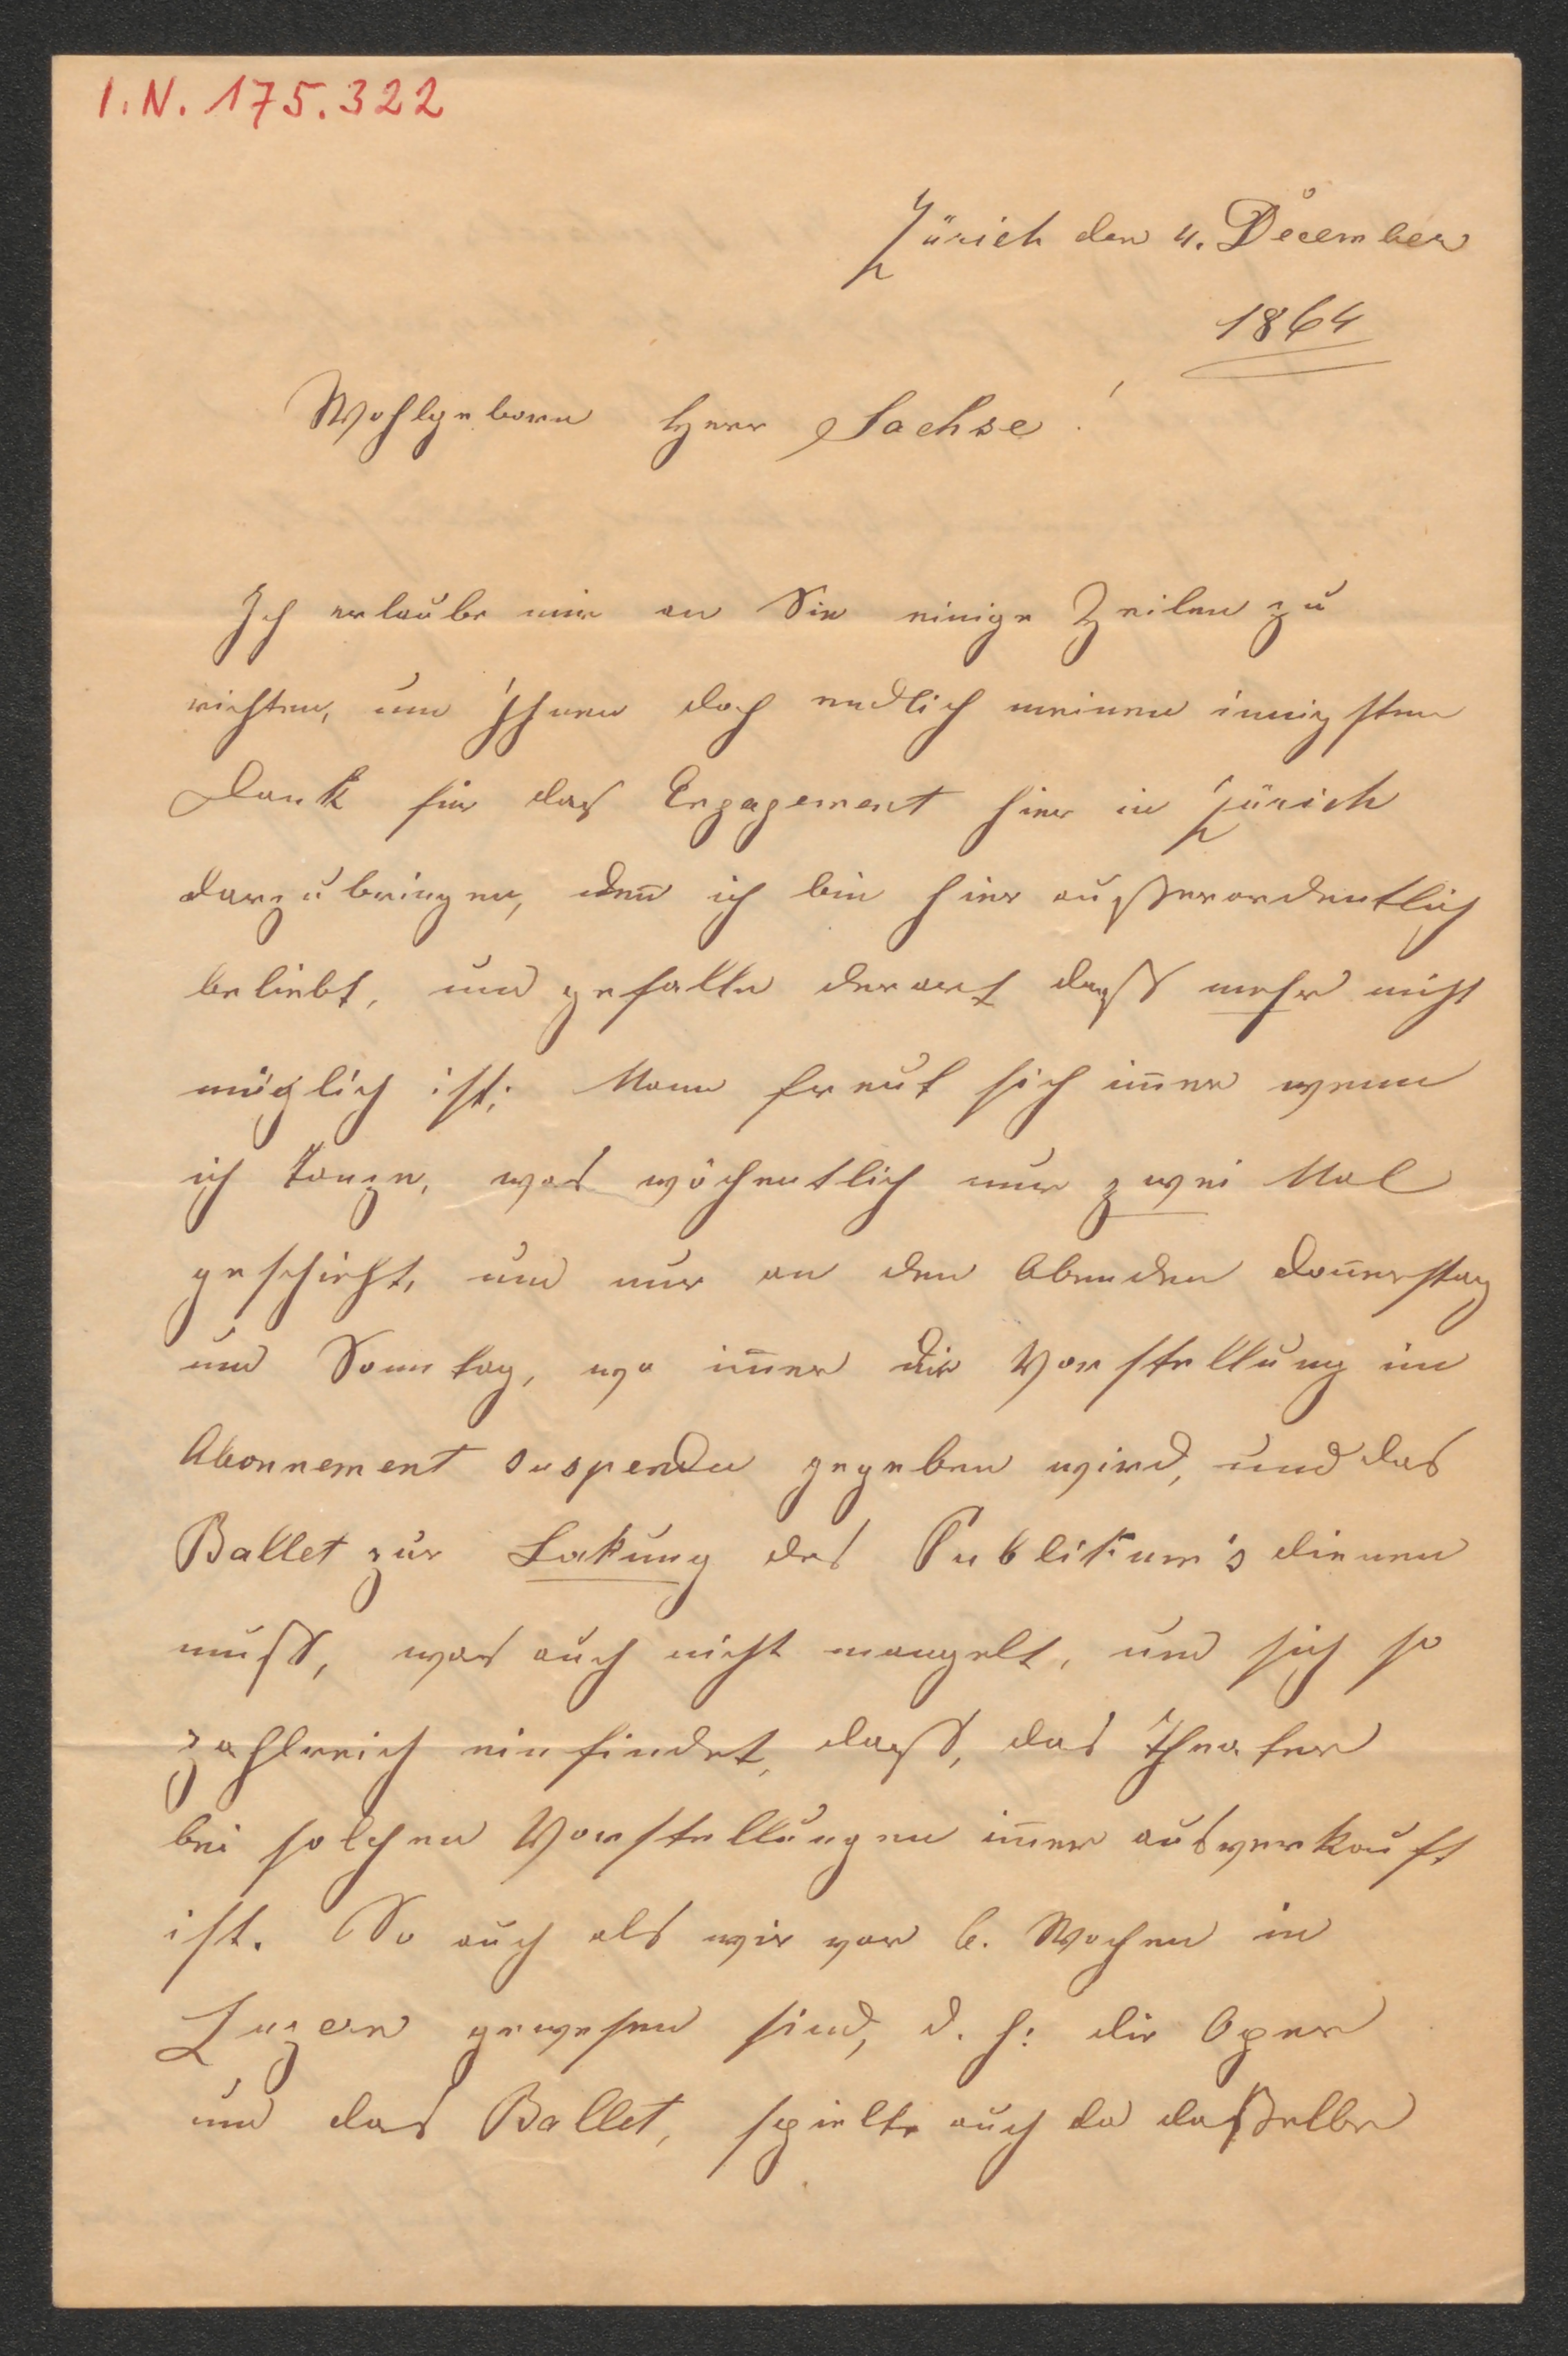 I.N. 175.322
Zürich den 4. December
1864
Wohlgeborn Herr Sachse!
Ich erlaube mir an Sie einige Zeilen zu
richten, um Ihnen doch endlich meinen innigsten
Dank für das Engagement hier in Zürich
darzubringen, deñ ich bin hier außerordentlich
beliebt, und gefalle derart dass mehr nicht
möglich ist; Mann freut sich im̃er wenn
ich tanze, was wöchentlich nur zwei Mal
geschieht, und nur an den Abenden Don̄erstag
und Sonntag, wo im̃er die Vorstellung im
Abonnement suspendu gegeben wird, und das
Ballet zur Lakung des Publikum's dienen
muss, was auch nicht mangelt, und sich so
zahlreich einfindet, dass, das Theater
bei solchen Vorstellungen im̃er ausverkauft
ist. So auch als wir vor 6. Wochen in
Luzern gewesen sind, d. h: die Oper
und das Ballet, spielte auch da daßelbe